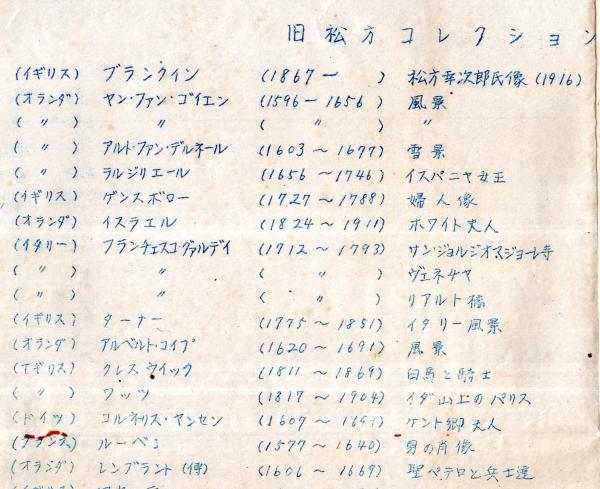 旧松方コレクション
(イギリス) ブランクイン (1867ー ) 松方幸次郎氏像 (1916)
(オランダ) ヤン・ファン・ゴイエン (1596ー1656) 風景
( 〃 ) 〃 ( 〃 ) 〃
( 〃 ) アルト・ファン・デルネール (1603〜1677) 雪景
( 〃 ) ラルジリエール (1656〜1746) イスパニヤ女王
(イギリス) ゲンスボロー (1727〜1788) 婦人像
(オランダ) イスラエル (1824〜1911) ホワイト夫人
(イタリー) フランチェスコ・グァルデイ (1712〜1793) サン・ジョルジオマジョーレ寺
( 〃 ) 〃 ( 〃 ) ヴェネチヤ
( 〃 ) 〃 ( 〃 ) リアルト橋
(イギリス) ターナー (1775〜1851) イタリー風景
(オランダ) アルベルト・コイプ (1620〜1691) 風景
(イギリス) クレスウイック (1811〜1869) 白馬と騎士
( 〃 ) ワッツ (1817〜1904) イダ山上のパリス
(ドイツ) コルネリス・ヤンセン (1607〜) ケント郷夫人
(フランス) ルーベン (1577〜1640) 男の肖像
(オランダ) レンブラント (傳) (1606〜1669) 聖ペテロと兵士達